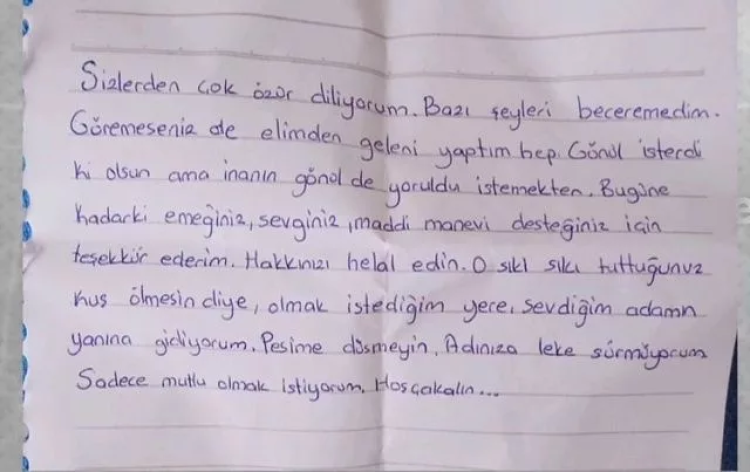 Sizlerden çok özür diliyorum. Bazı şeyleri beceremedim.
Göremeseniz de elimden geleni yaptım hep. Gönül isterdi
ki olsun ama inanın gönül de yoruldu istemekten. Bugüne
kadarki emeğiniz, sevginiz, maddi manevi desteğiniz için
teşekkür ederim. Hakkınızı helal edin. O sıkı sıkı tuttuğunuz
kuş ölmesin diye, olmak istediğim yere, sevdiğim adamın
yanına gidiyorum. Peşime düşmeyin. Adınıza leke sürmüyorum
Sadece mutlu olmak istiyorum. Hoşçakalın...